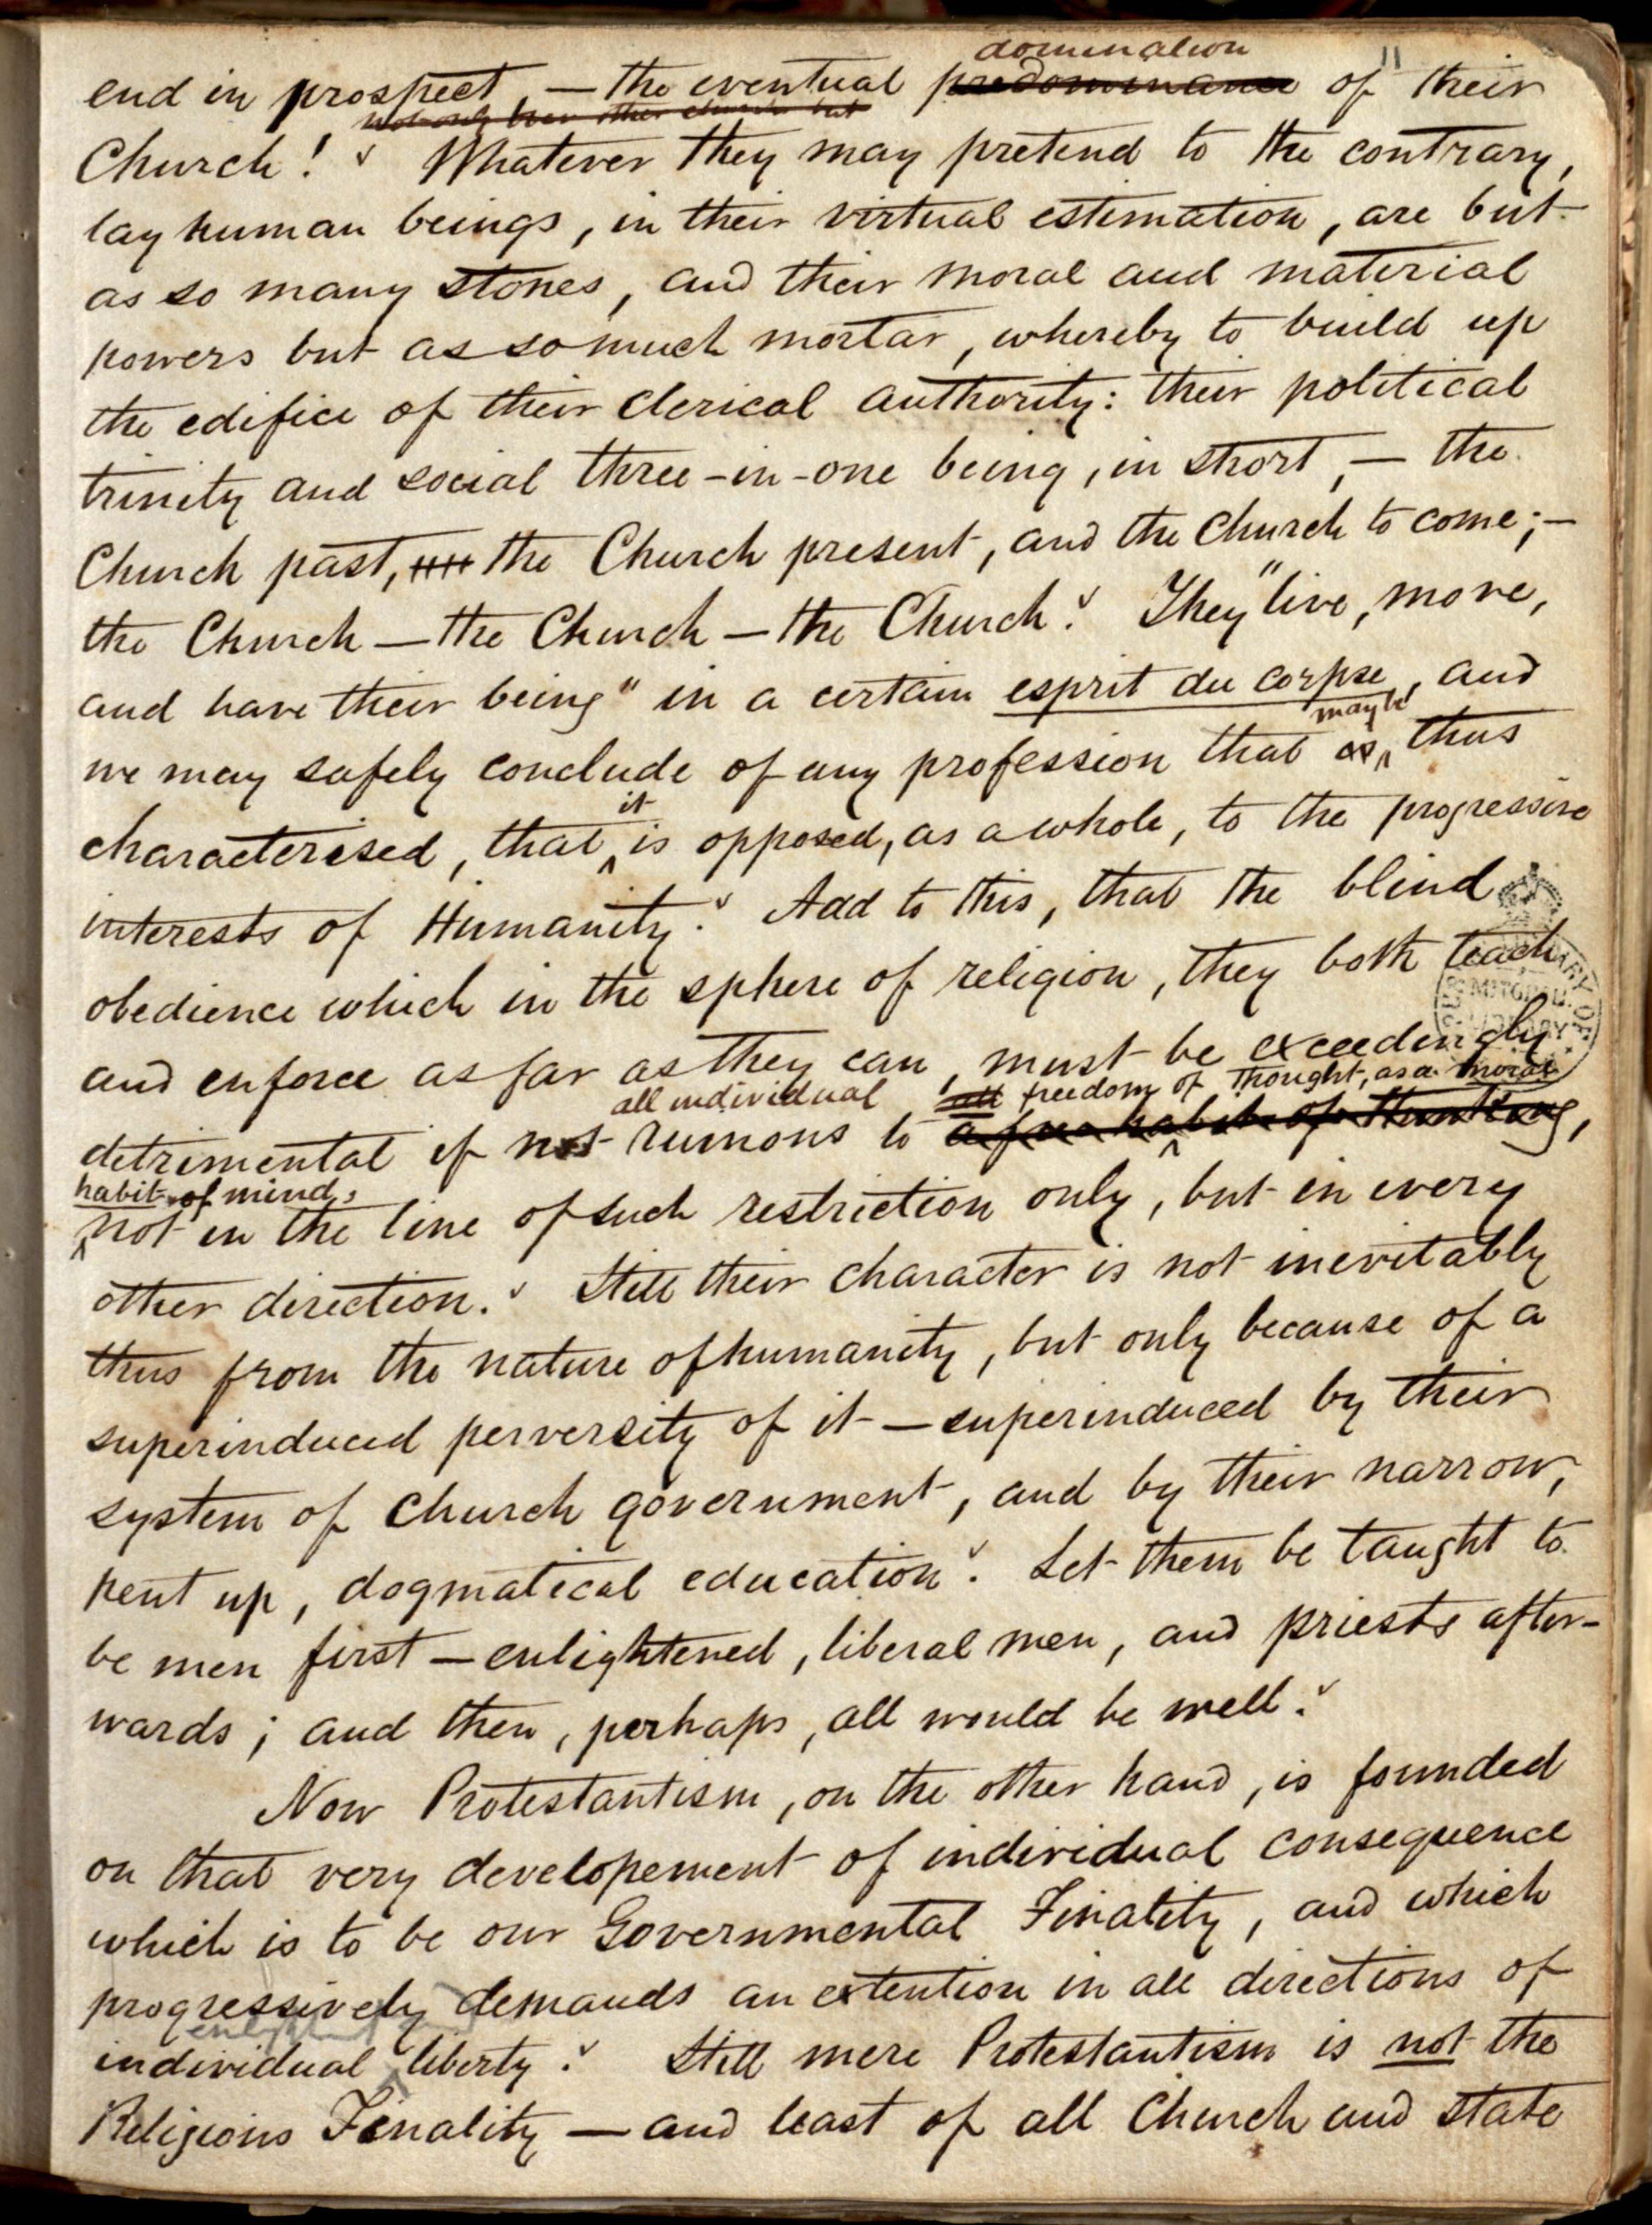 11
domination
end in prospect, — the eventual predominance of their
not only over other churches but
Church! Whatever they may pretend to the contrary,
lay human beings, in their virtual estimation, are but
as so many stones, and their moral and material
powers but as so much mortar, whereby to build up
the edifice of their clerical authority: their political
trinity and social three-in-one being, in short, — the
Church past, the Church present, and the Church to come; —
the Church — the Church — the Church. They "live, move,
and have their being" in a certain esprit du corpse, and
may be
we may safely conclude of any profession that is thus
it
characterised, that is opposed, as a whole, to the progressive
interests of Humanity. Add to this, that the blind
obedience which in the sphere of religion, they both teach
and enforce as far as they can, must be exceedingly
all individual all freedom of thought, as a moral
detrimental if not ruinous to a free habit of thinking,
habit of mind,
not in the line of such restriction only, but in every
other direction. Still their character is not inevitably
thus from the nature of humanity, but only because of a
superinduced perversity of it — superinduced by their
system of Church government, and by their narrow,
pent up, dogmatical education. Let them be taught to
be men first — enlightened, liberal men, and priests after-
wards; and then, perhaps, all would be well.
Now Protestantism, on the other hand, is founded
on that very developement of individual consequence
which is to be our Governmental Finality, and which
progressively demands an extention in all directions of
individual liberty. Still mere Protestantism is not the
Religious Finality — and least of all Church and State